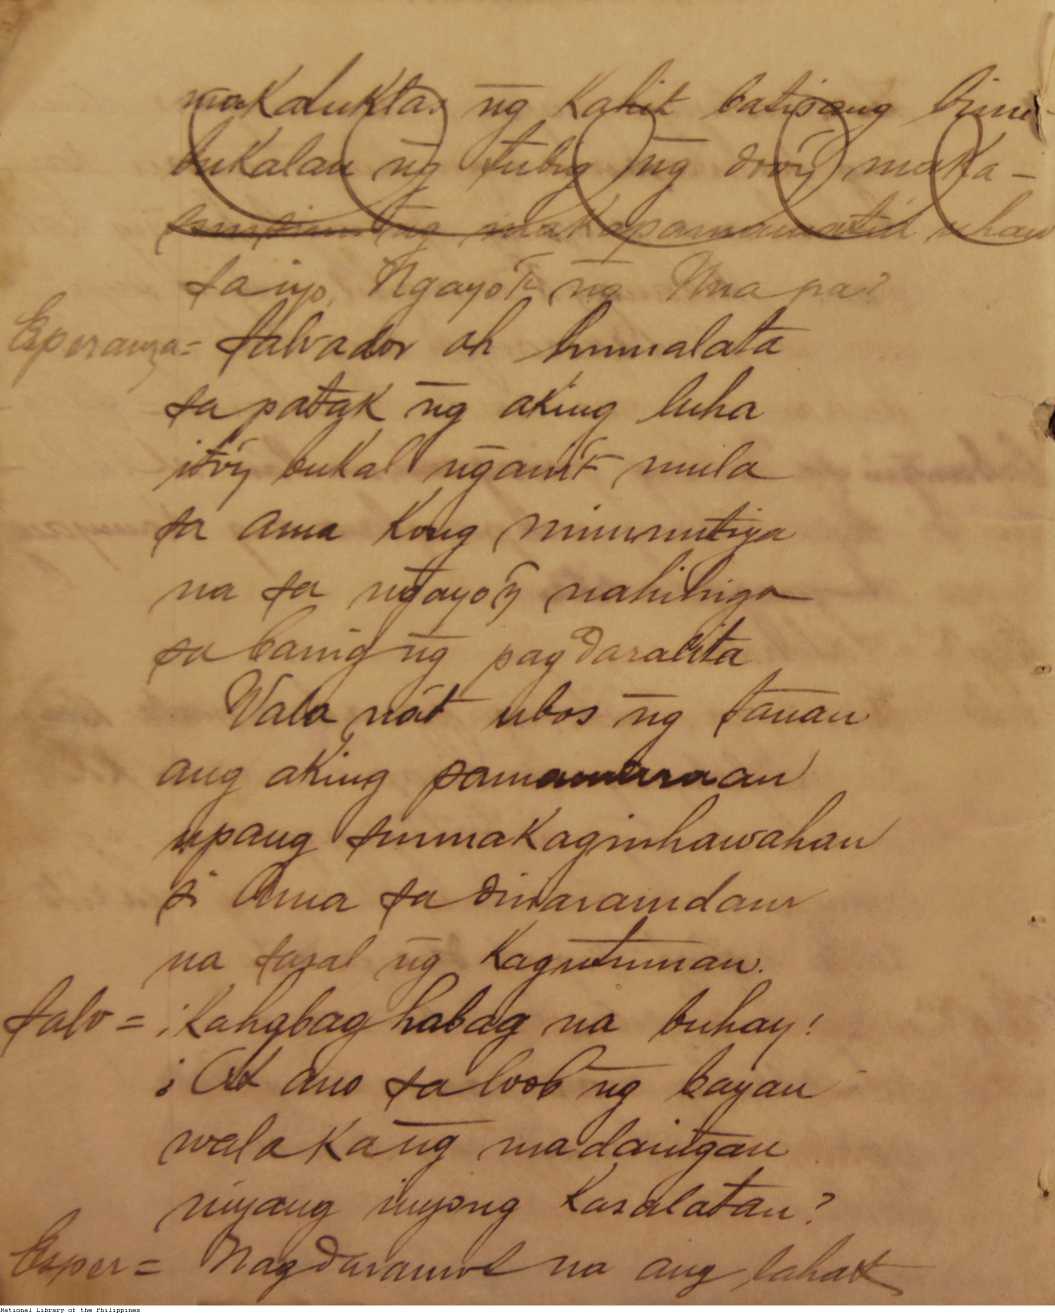 makatuktas n̄g kahit batisang bini-
bukalan n̄g tubig n̄g doo'y maka-
n̄g makapamamatid uhaw
sa iyo, Ngayo't n̄g Una pa?
Esperanza = Salvador oh humalata
sa patak n̄g aking luha
ito'y bukal n̄guni't mula
sa ama kong minumutya
na sa n̄gayo'y nahihiga
sa banig n̄g pagdaralita
Wala na't ubos n̄g tanan
ang aking
upang sumakaginhawahan
si Ama sa dinaramdam
na sasal n̄g Kagutuman.
Salv = ¡Kahgbag habag na buhay!
¿At ano sa loob n̄g bayan
wala kan̄g madain̄gan
niyang inyong Kasalatan?
Esper = Nagdaramot na ang lahat
National Library of the Philippines